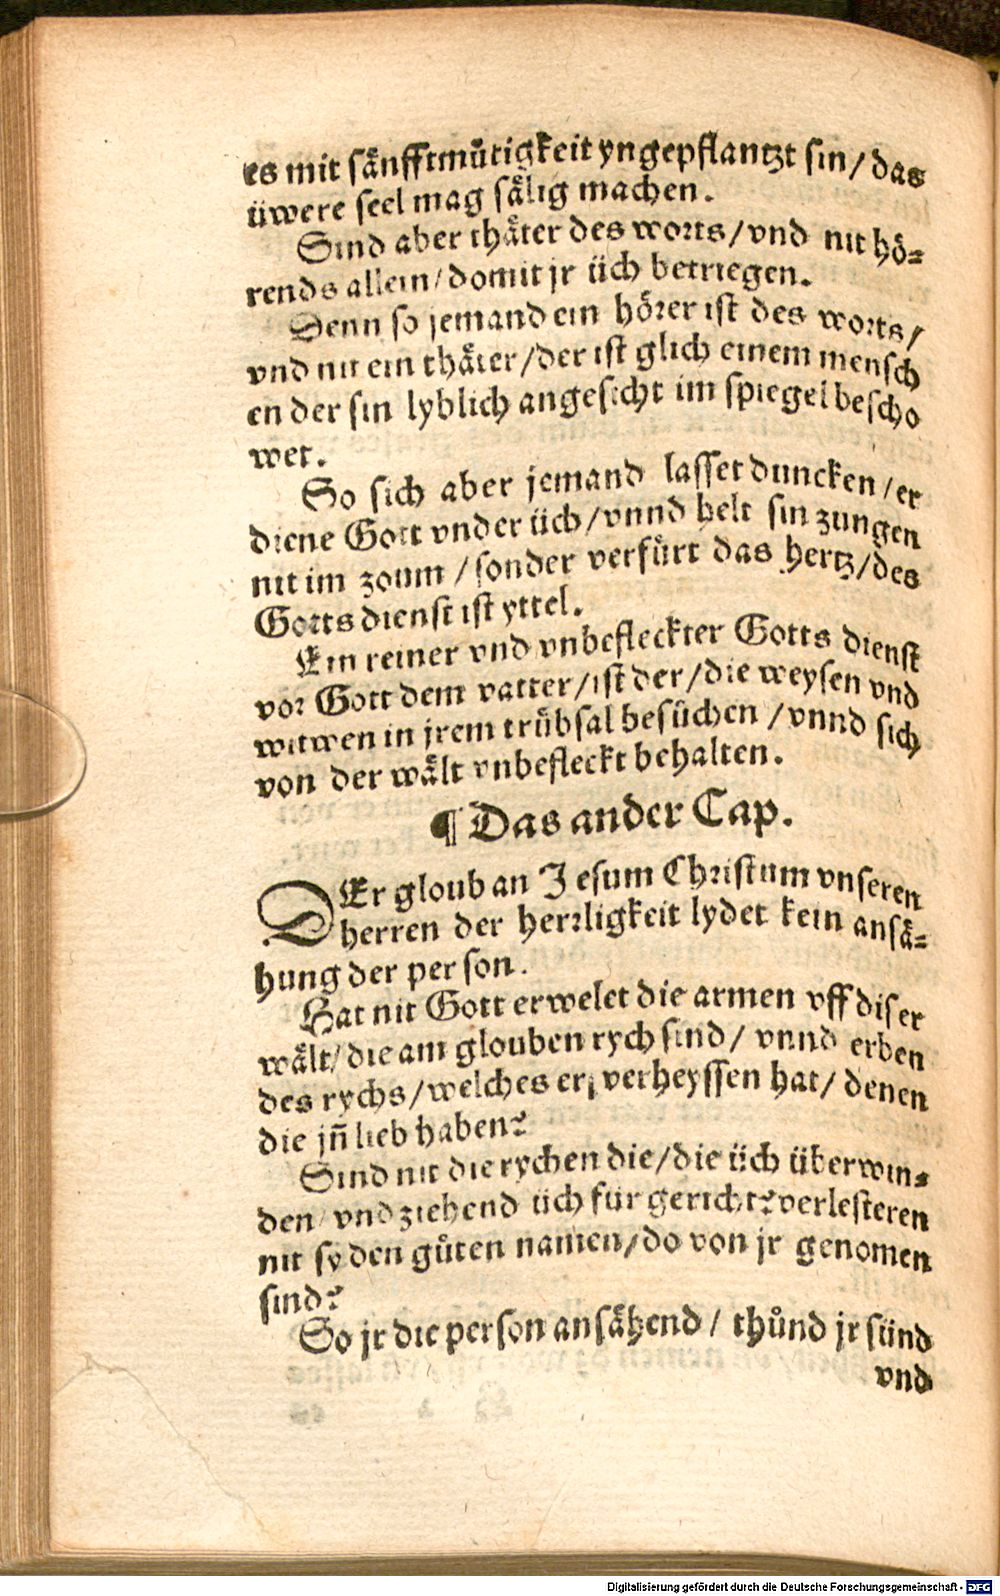 es mit sänfftmůtigkeit yngepflantzt sin/ das
üwere seel mag sälig machen.
Sind aber thäter des worts/ vnd nit hö⸗
rends allein/ domit jr üch betriegen.
Denn so jemand ein hörer ist des worts/
vnd nit ein thäter/ der ist glich einem mensch
en der sin lyblich angesicht im spiegel bescho
wet.
So sich aber jemand lasset duncken/ er
diene Gott vnder üch/ vnnd helt sin zungen
nit im zoum/ sonder verfürt das hertz/ des
Gotts dienst ist yttel.
Ein reiner vnd vnbefleckter Gotts dienst
vor Gott dem vatter/ ist der/ die weysen vnd
witwen in jrem trübsal besůchen/ vnnd sich
von der wält vnbefleckt behalten.
¶ Das ander Cap.
DEr gloub an Jesum Christum vnseren
herren der herrligkeit lydet kein ansä⸗
hung der person.
Hat nit Gott erwelet die armen vff diser
wält/ die am glouben rych sind/ vnnd erben
des rychs/ welches er verheyssen hat/ denen
die jn̄ lieb haben?
Sind nit die rychen die/ die üch überwin⸗
den/ vnd ziehend üch für gericht? verlesteren
nit sy den gůten namen/ do von jr genomen
sind?
So jr die person ansähend/ thůnd jr sünd
vnd
Digitalisierung gefördert durch die Deutsche Forschungsgemeinschaft - DFG